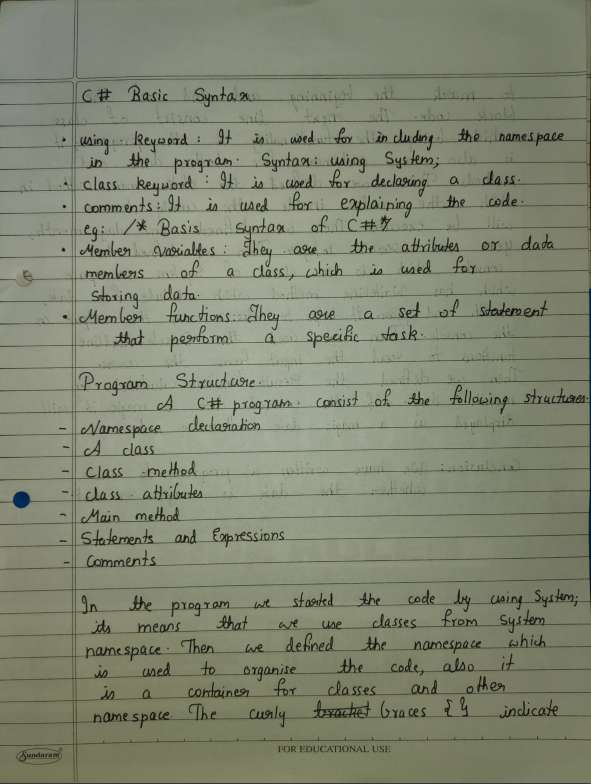 C# Basic Syntax
• using keyword : It is used for including the namespace
in the program. Syntax: using System;
• class keyword : It is used for declaring a class.
• comments : It is used for explaining the code.
eg: /* Basis Syntax of C# */
• Member Variables : They are the attributes or data
members of a class, which is used for
storing data.
• Member functions : They are a set of statement
that perform a specific task.
Program Structure.
A C# program consist of the following structures.
- Namespace declaration
- A class
- Class method
- class attributes
- Main method
- Statements and Expressions
- Comments
In the program we started the code by using System;
its means that we use classes from System
namespace. Then we defined the namespace which
is used to organise the code, also it
is a container for classes and other
namespace. The curly brachet braces { } indicate
Sundaram
FOR EDUCATIONAL USE